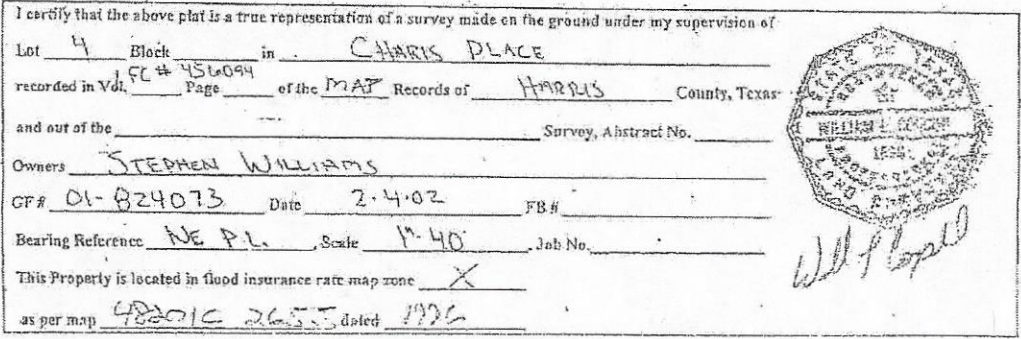 I certify that the above plat is a true representation of a survey made on the ground under my supervision of
Lot 4 Block in CHARIS PLACE
recorded in Vol. FC # 456094 Page of the MAP Records of HARRIS County, Texas
and out of the Survey, Abstract No.
Owners STEPHEN WILLIAMS
GF # 01-824073 Date 2.4.02 FB #
Bearing Reference NE P.L. Scale 1"-40 Job No.
This Property is located in flood insurance rate map zone X
as per map 48201C 265J dated 1996
STATE OF TEXAS
REGISTERED
WILLIAM
PROFESSIONAL
LAND